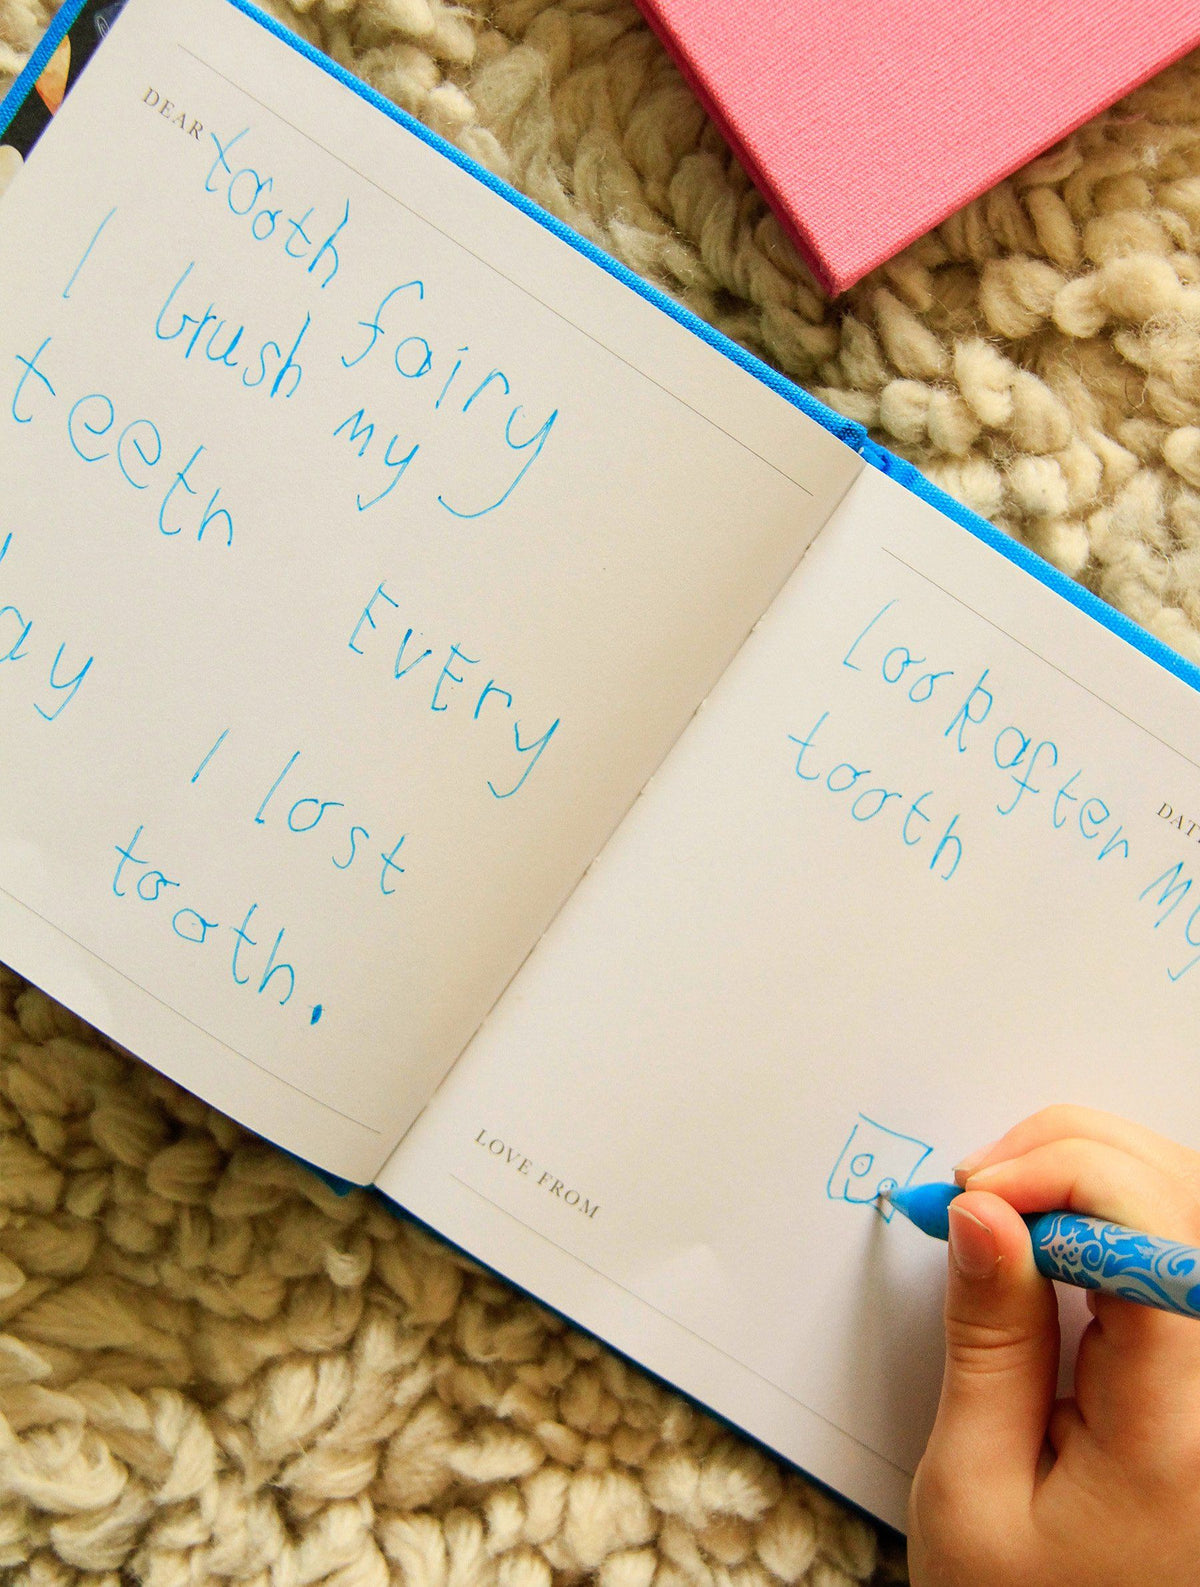 DEAR tooth fairy
I brush my
teeth EvEry
day I lost
tooth.
Look after My
tooth
DAT
LOVE FROM